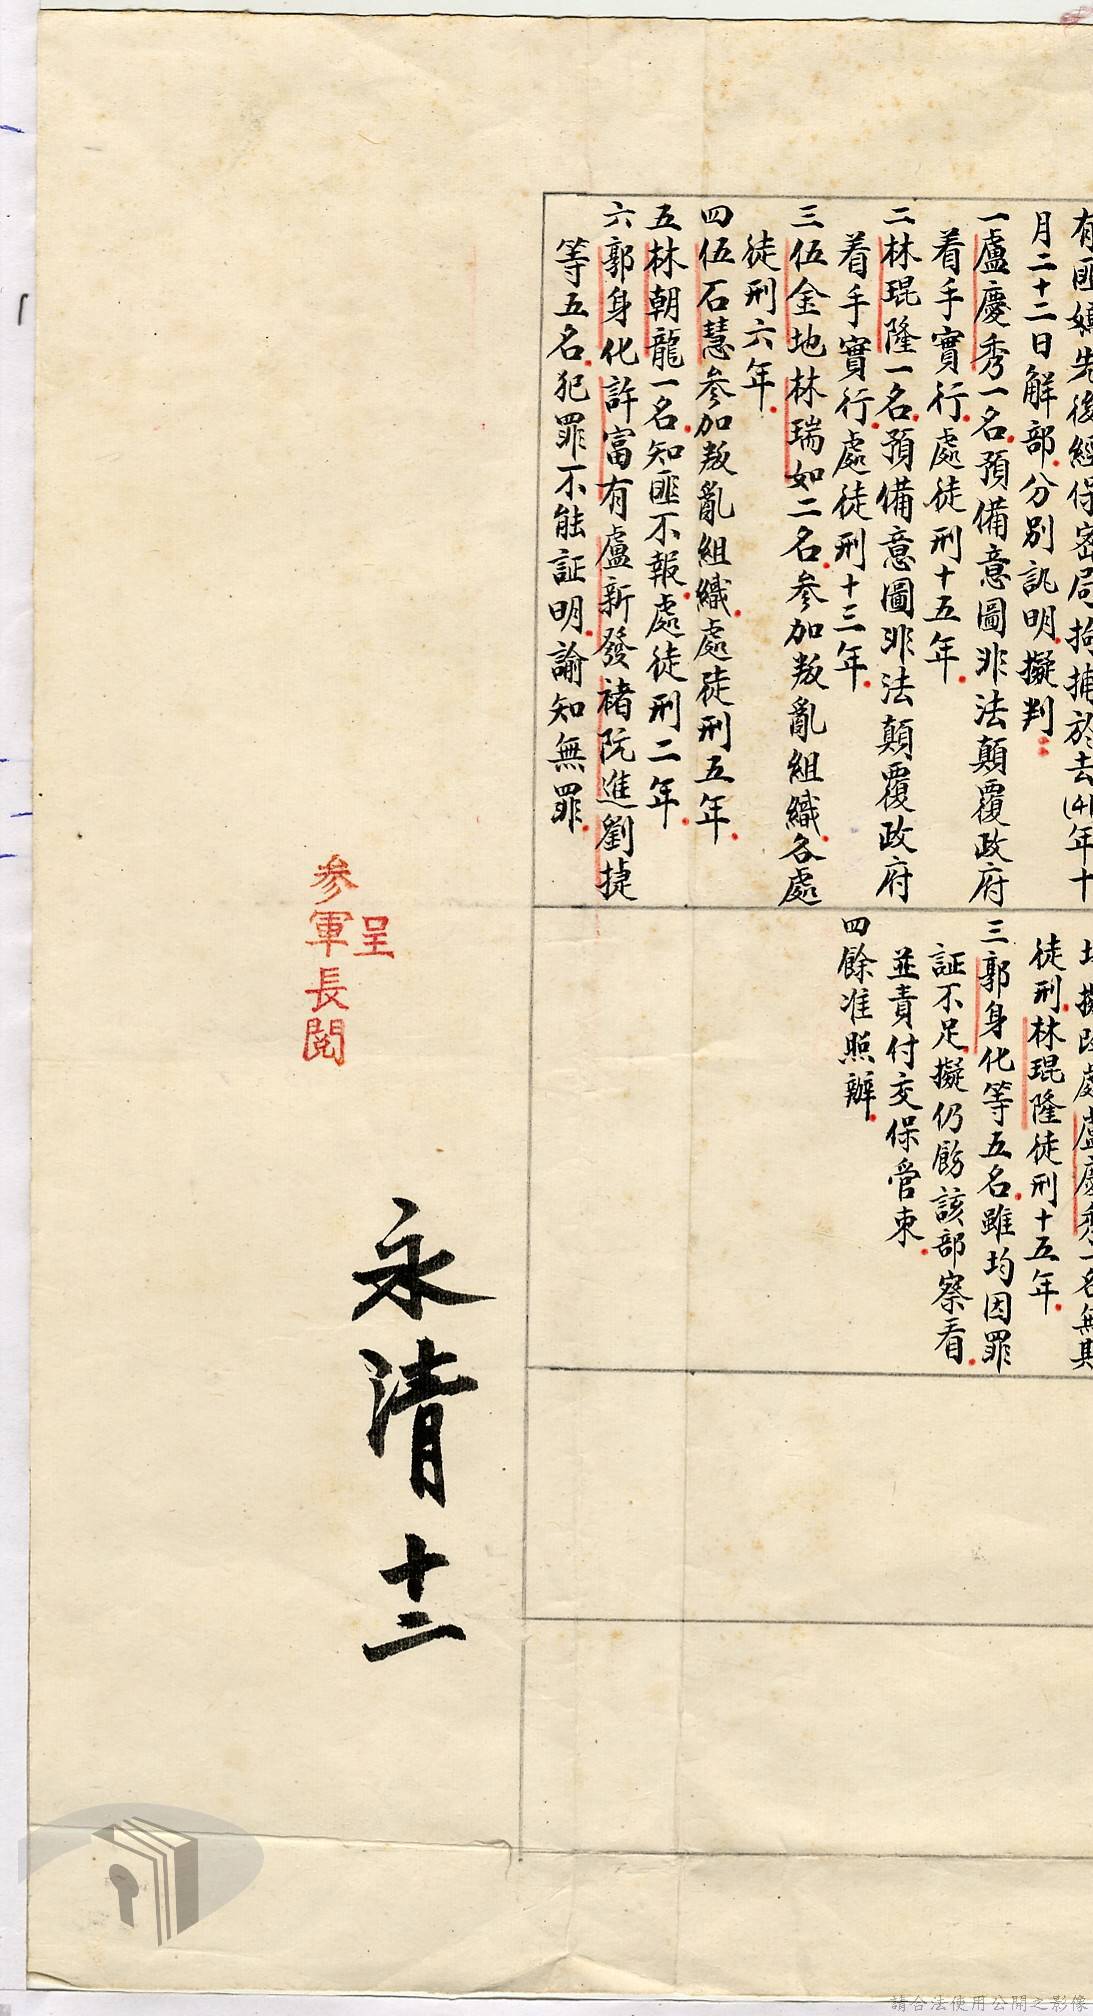 有匪嫌先後經保密局拘捕於去(41)年十
月二十二日解部分別訊明擬判：
一盧慶秀一名預備意圖非法顛覆政府
着手實行處徒刑十五年
二林琨隆一名預備意圖非法顛覆政府
着手實行處徒刑十三年
三伍金地林瑞如二名參加叛亂組織各處
徒刑六年
四伍石慧參加叛亂組織處徒刑五年
五林朝龍一名知匪不報處徒刑二年
六郭身化許富有盧新發褚阮進劉捷
等五名犯罪不能証明諭知無罪
處盧慶秀一名無期
徒刑林琨隆徒刑十五年
三郭身化等五名雖均因罪
証不足擬仍飭該部察看
並責付交保管束
四餘准照辦
呈
參軍長閱
永清十二
請合法使用公開之影像